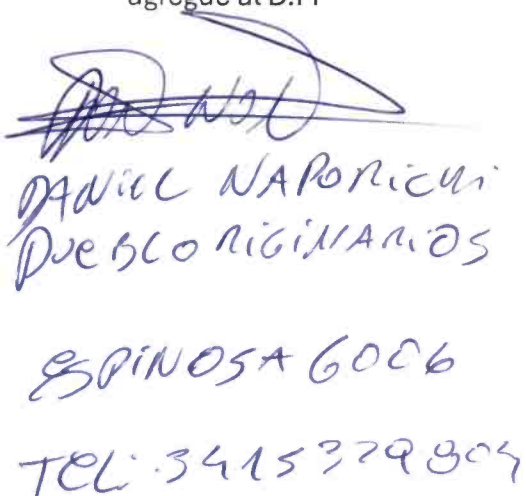 agregue al D.PI
DANIEL NAPORICHI
PUEBLO RIGINARIOS
ESPINOSA 6006
TEL: 3415379804